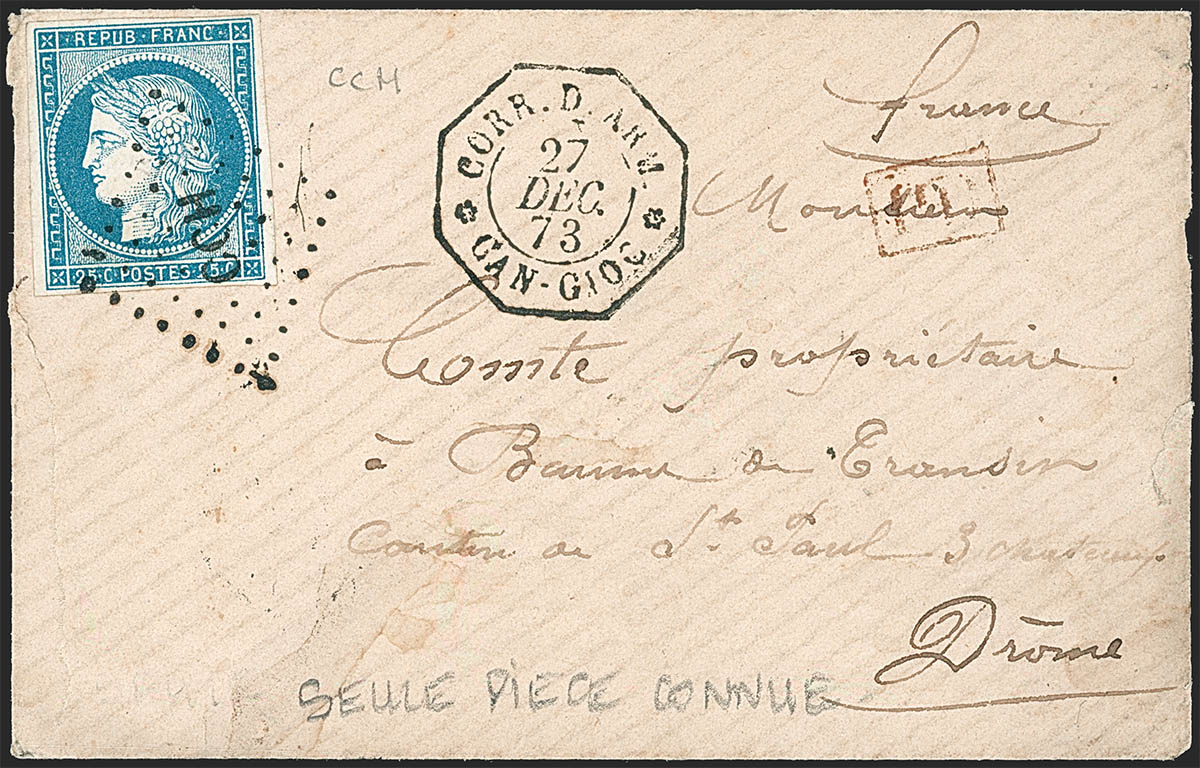 REPUB FRANC
25 C POSTES 25 C
CCH
CCH
CORR. D. ARM.
27
DEC.
73
CAN-GIOC
France
PD
Monsieur
Comte propriétaire
à Baume de Transin
Canton de St. Paul 3 chateaux
Drôme
SEULE PIECE CONNUE